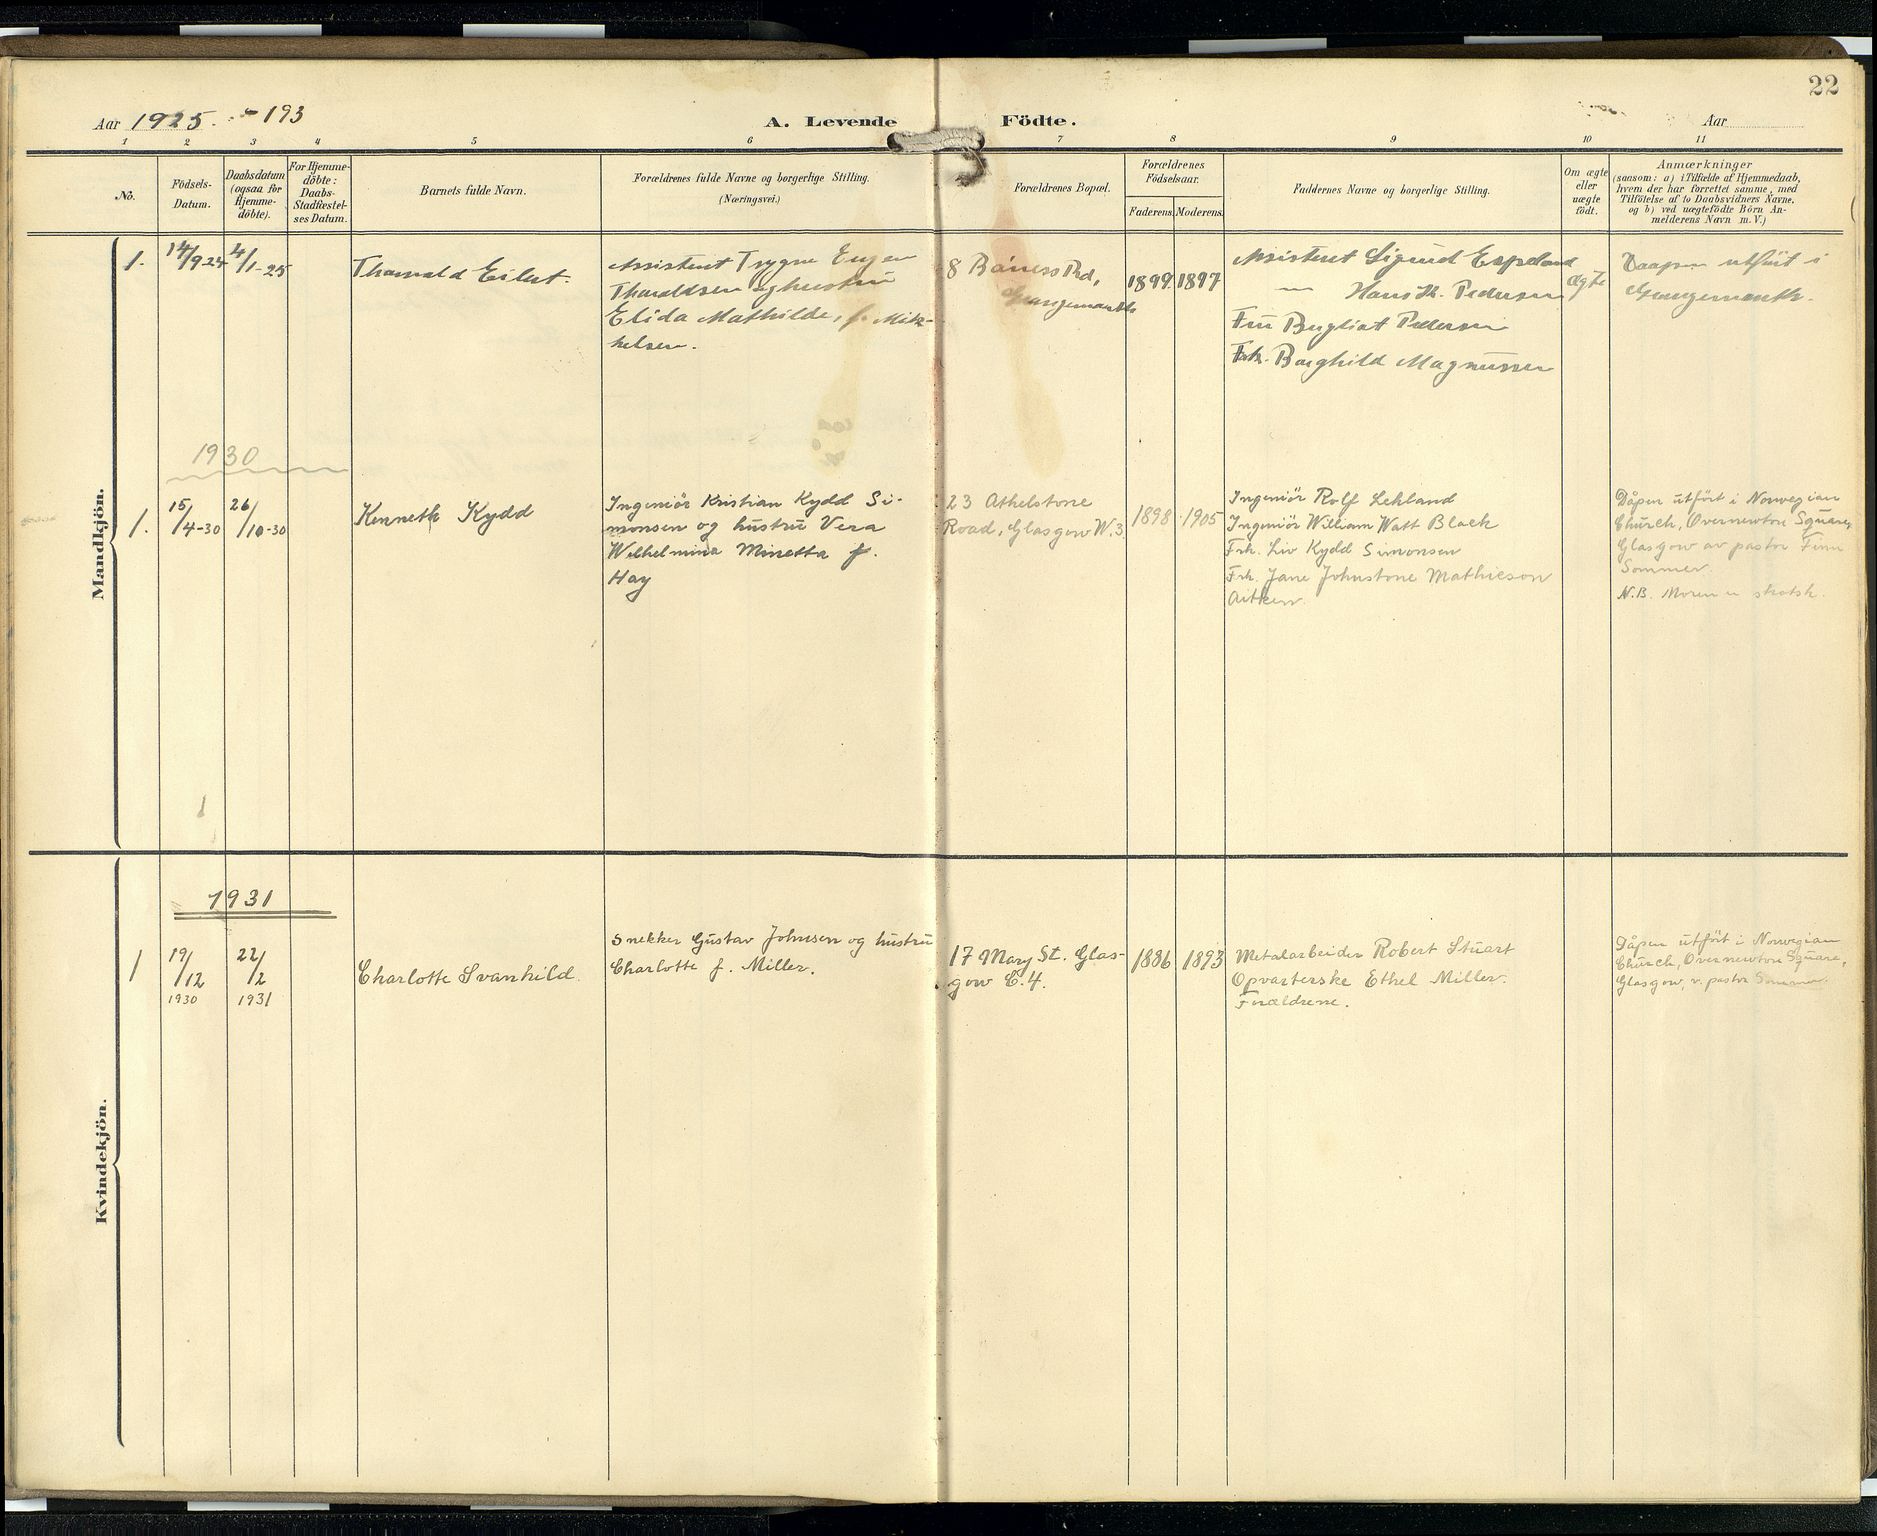 22
Aar 1925 - 193
A. Levende Födte.
Aar
1 2 3 4 5 6 7 8 9 10 11
No.
Födsels-
Datum.
Daabsdatum
(ogsaa for
Hjemme-
döbte).
For Hjemme-
döbte:
Daabs-
Stadfæstel-
ses Datum.
Barnets fulde Navn.
Forældrenes fulde Navne og borgerlige Stilling.
(Næringsvei.)
Forældrenes Bopæl.
Forældrenes
Födselsaar.
Faderens. Moderens.
Faddernes Navne og borgerlige Stilling.
Om ægte
eller
uægte
födt.
Anmærkninger
(saasom: a) i Tilfælde af Hjemmedaab,
hvem der har forrettet samme, med
Tilföielse af to Daabsvidners Navne.
og b) ved uægtefödte Börn An-
melderens Navn m. V.)
Mandkjön.
1.
14/9-24
4/1-25
Thorvald Eilert.
Assistent Trygve
Tharaldsen og hustru
Elida Mathilde, f. Mik-
kelsen.
8 Bóness Rd,
Grangemouth
1899 1897
Assistent Sigurd Espeland
— Hans Kr. Pedersen
Fru Pedersen
Frk. Borghild Magnussen
Ægte
Daapen utført i
Grangemouth.
1930
1.
15/4-30
26/10-30
Kenneth Kydd
Ingeniör Kristian Kydd Si-
monsen og hustru Vera
Wilhelmina Minetta f.
Hay
23 Athelstone
Road, Glasgow W.3.
1898 1905
Ingeniör Rolf Lekland
Ingeniör William Watt Black
Frk. Liv Kydd Simonsen
Frk. Jane Johnstone Mathieson
Aitken.
Dåpen utført i Norwegian
Church, Overnewton Square,
Glasgow av pastor Finn
Sommer.
N.B. Moren er skotsk.
Kvindekjön.
1931
1
19/12
1930
22/2
1931
Charlotte Svanhild.
Snekker Gustav Johnsen og hustru
Charlotte f. Miller.
17 Mary St. Glas-
gow C.4.
1886 1893
Metalarbeider Robert Stuart
Opvarterske Ethel Miller.
Forældrene.
Dåpen utført i Norwegian
Church, Overnewton Square,
Glasgow, v. pastor Sommer.